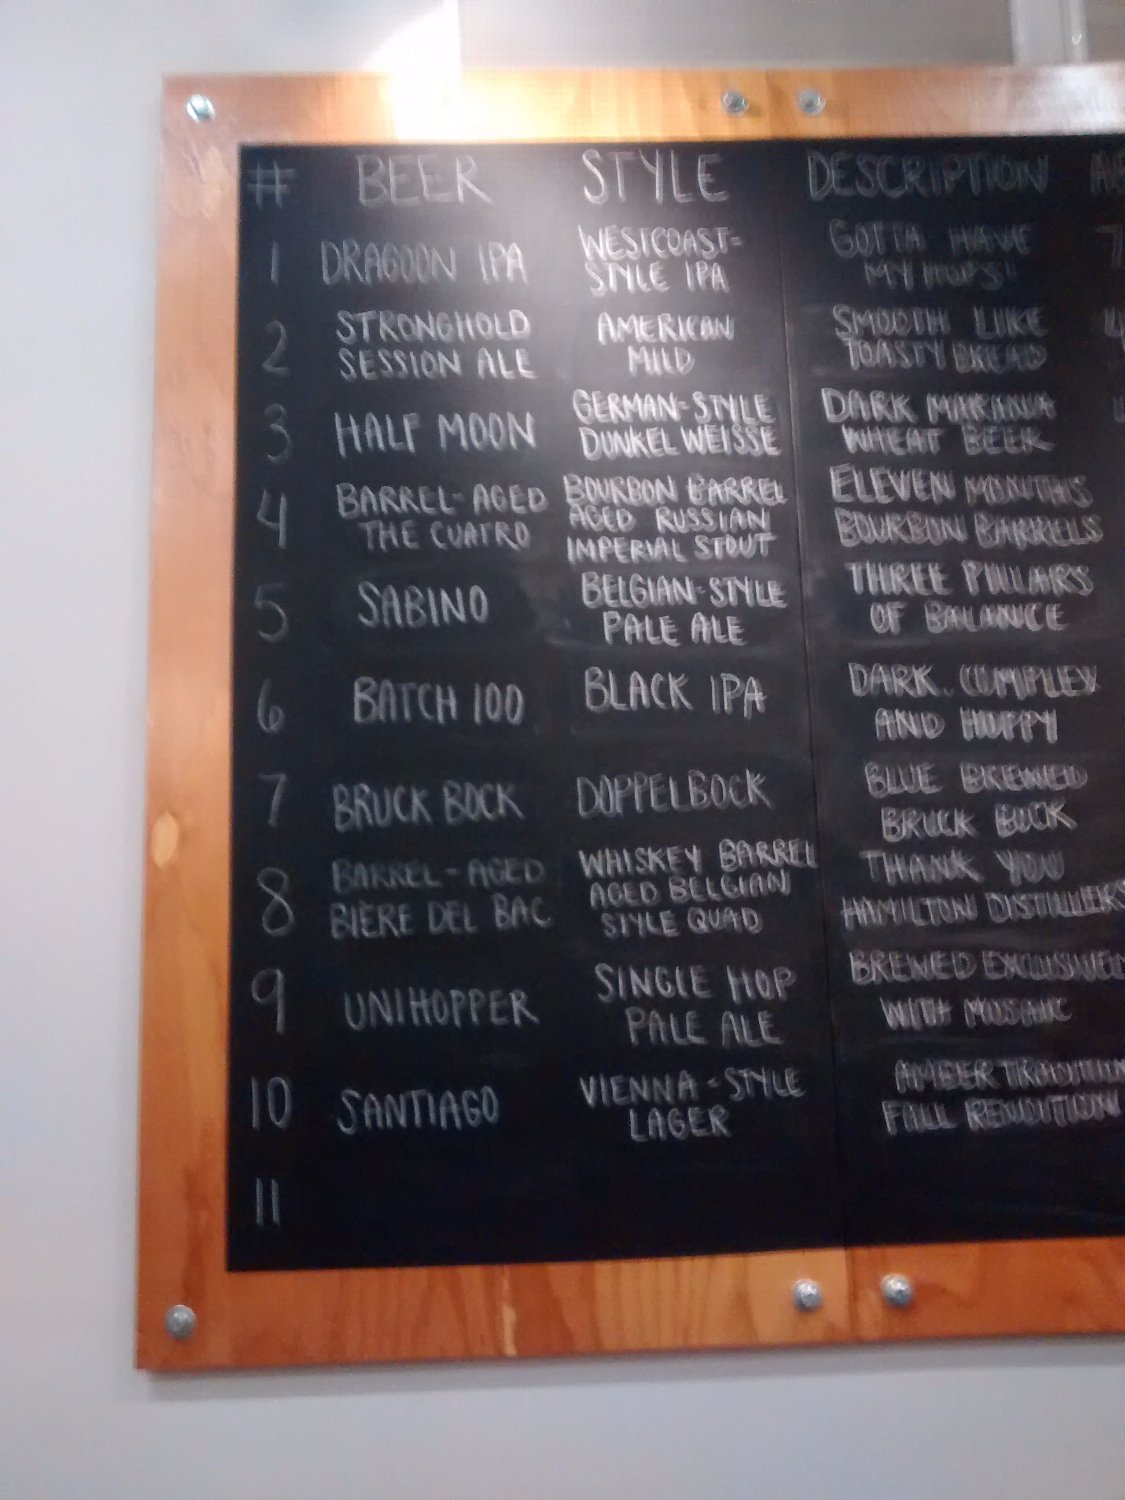 # BEER STYLE DESCRIPTION
1 DRAGOON IPA WESTCOAST-STYLE IPA GOTTA HAVE MY HOPS!
2 STRONGHOLD SESSION ALE AMERICAN MILD SMOOTH LIKE TOASTY BREAD
3 HALF MOON GERMAN-STYLE DUNKEL WEISSE DARK MARANA WHEAT BEER
4 BARREL-AGED THE CUATRO BOURBON BARREL AGED RUSSIAN IMPERIAL STOUT ELEVEN MONTHS BOURBON BARRELS
5 SABINO BELGIAN-STYLE PALE ALE THREE PILLARS OF BALANCE
6 BATCH 100 BLACK IPA DARK, COMPLEX AND HOPPY
7 BRUCK BOCK DOPPELBOCK BLUE BREWED BRUCK BOCK
8 BARREL-AGED BIÈRE DEL BAC WHISKEY BARREL AGED BELGIAN STYLE QUAD THANK YOU HAMILTON DISTILLERS
9 UNIHOPPER SINGLE HOP PALE ALE BREWED WITH MOSAIC
10 SANTIAGO VIENNA-STYLE LAGER AMBER FALL RENDITION
11